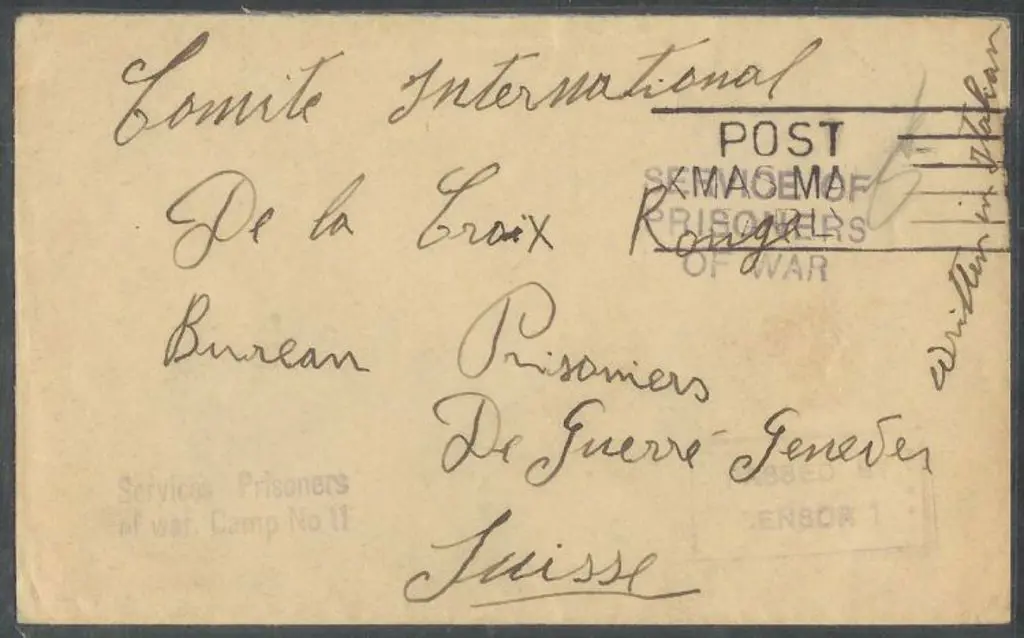 Comite International
POST
XMAS MAIL
SERVICE OF
PRISONERS
OF WAR
De la Croix Rouge
Bureau Prisoniers
De Guerre Genever
Suisse
Written in Italian
Services Prisoners
of war. Camp No 11
PASSED BY
CENSOR 1